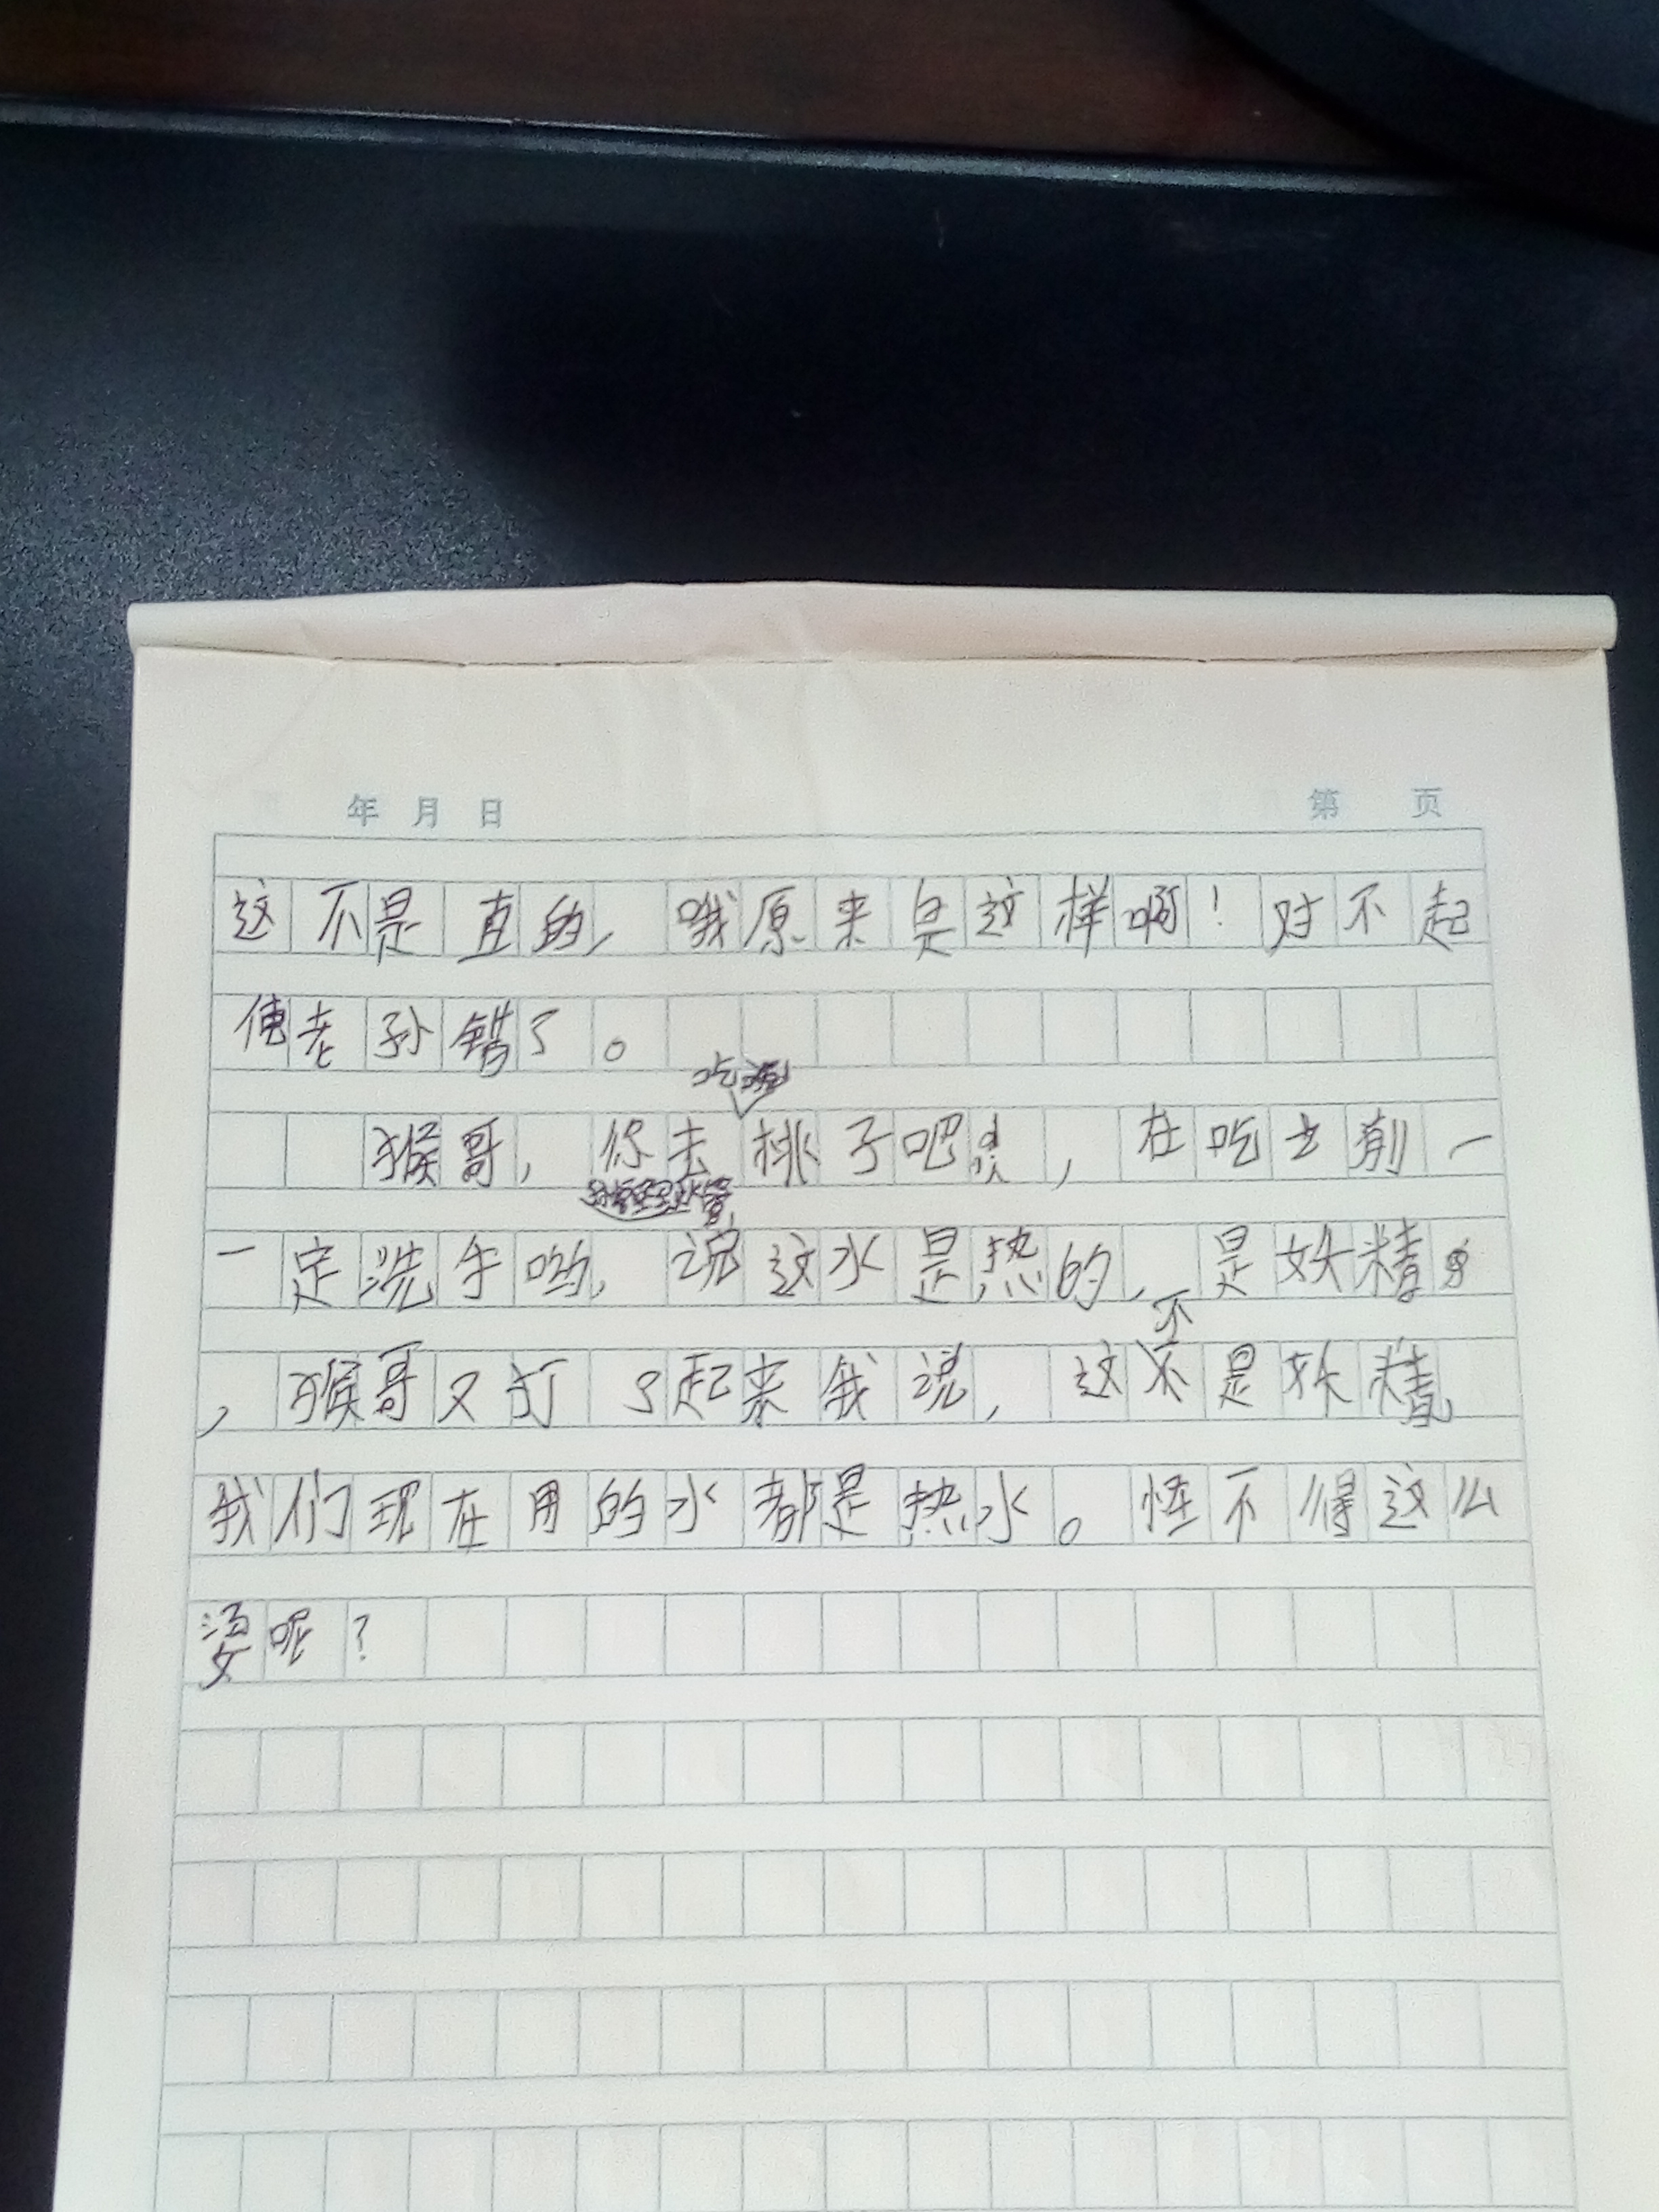 年 月 日 第 页
这不是直的，哦原来是这样啊！对不起
俺老孙错了。
吃
猴哥，你去桃子吧！，在吃之前一
一定洗手哟，说这水是热的，是妖精
不
，猴哥又打了起来我说，这不是妖精
我们现在用的水都是热水。怪不得这么
烫呢？